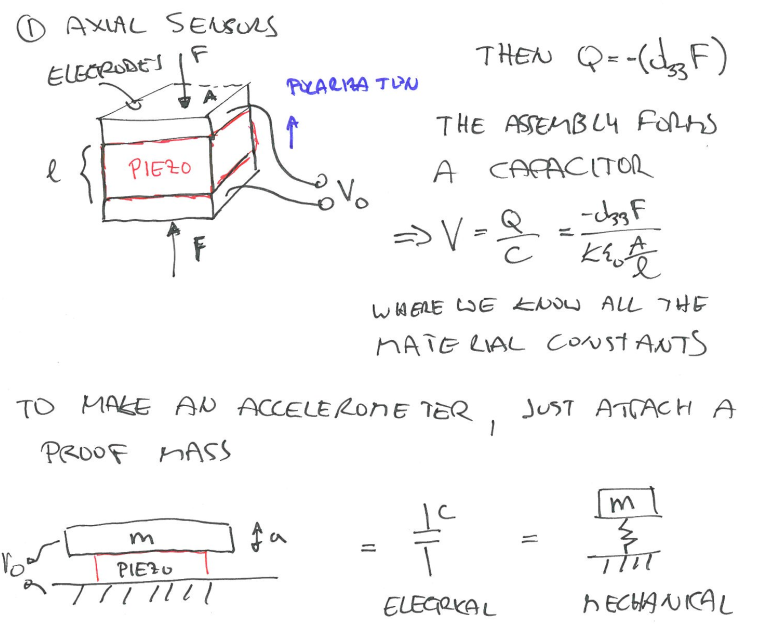 ① AXIAL SENSORS
ELECRODES
F
A
POLARIZATION
l { PIEZO
V₀
F
THEN Q = -(d₃₃F)
THE ASSEMBLY FORMS
A CAPACITOR
⇒ V = Q/C = -d₃₃F / (Kε₀ A/l)
WHERE WE KNOW ALL THE
MATERIAL CONSTANTS
TO MAKE AN ACCELEROMETER, JUST ATTACH A
PROOF MASS
m
a
V₀
PIEZO
= C
= m
ELECRICAL
MECHANICAL